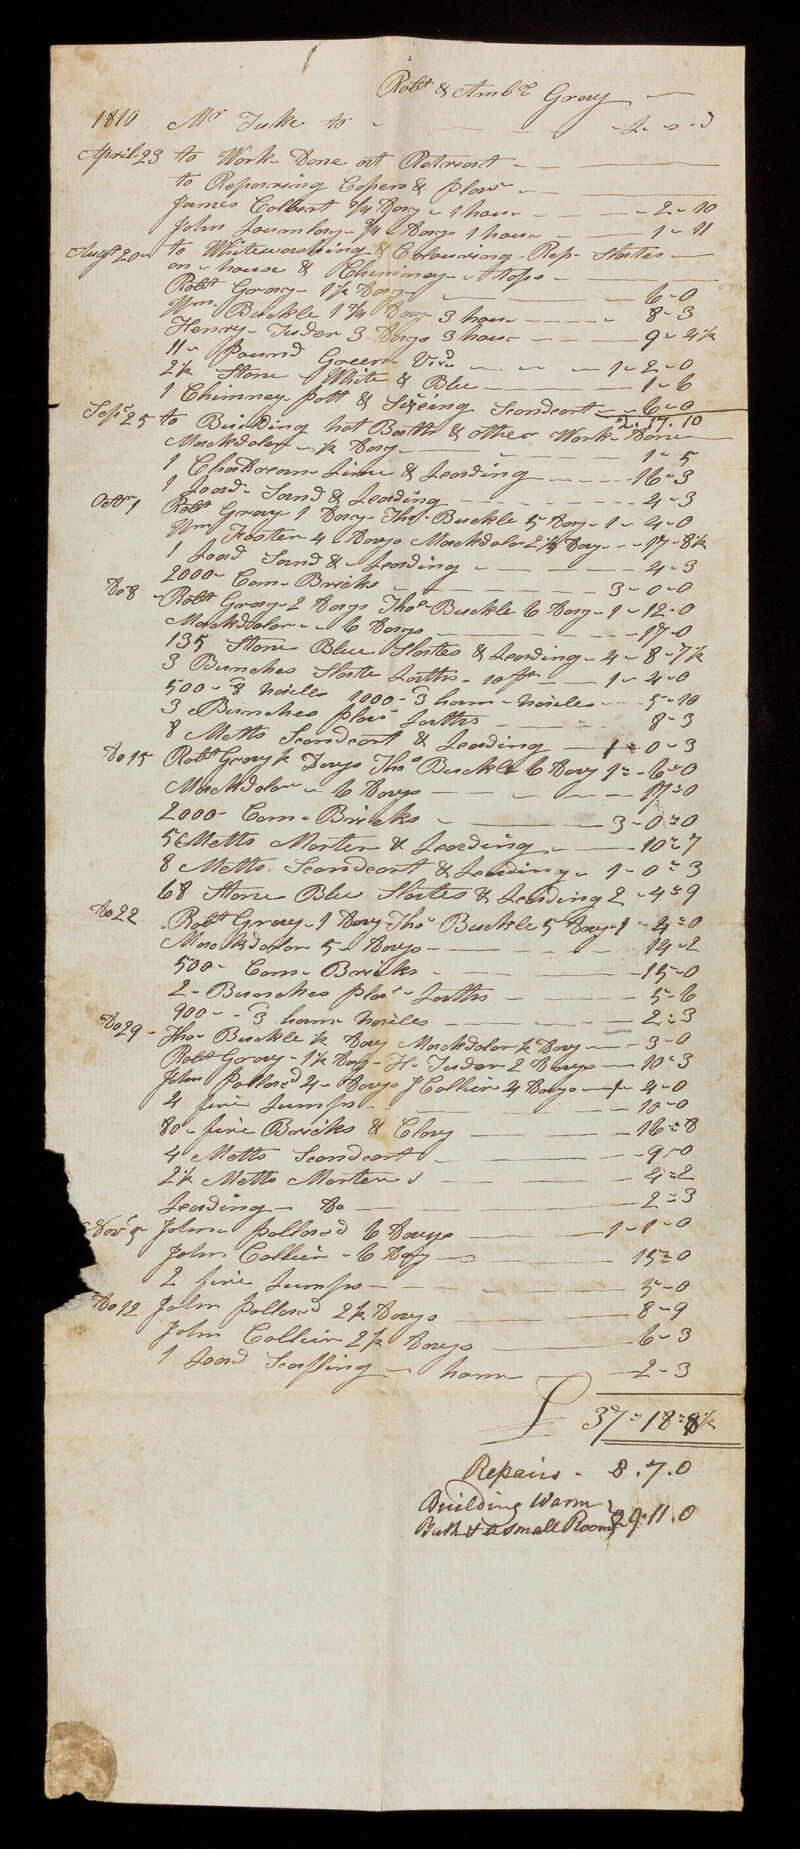 Robt & Ambe Gray
1810 Mr Tuke to £ s d
April 23 to Work Done at Retreat
to Repairing Copers & plasr
James Colbert 3/4 Day 1 hour 2-10
John 3/4 Days 1 hour 1-11
Augt 20 to Whitewashing & Colouring Rep Slates
on house & Chimney tops
Robt Gray 1½ Day 6-0
Wm Buckle 1¾ Day 3 hour 8-3
Henry Tuder 3 Days 3 hour 9-4½
11 pound Green 1-2-0
2½ Stone White & Blu 1-6
1 Chimney pott & Sizeing Scondcort 6-0
2.17.10
Sepr 25 to Building hot Bath & other Work Done
Mackdolor ½ Day 1-5
1 Choldroun Lime & Leading 16-3
1 Load Sand & Leading 4-3
Octr 1 Robt Gray 1 Day Thos Buckle 5 Day 1-4-0
Wm Foster 4 Days Mackdolor 2½ Day 17-8½
1 Load Sand & Leading 4-3
2000 Com Bricks 3-0-0
Do 8 Robt Gray 2 Days Thos Buckle 6 Day 1-12-0
Mackdolor 6 Days 17-0
135 Stone Blue Slates & Leading 4-8-7½
3 Bunches Slate Laths 10 ft 1-4-0
500-8 Nailes 1000-3 ham Nailes 5-10
3 Bunches plasr Laths 8-3
8 Metts Scondcort & Leading 1-0-3
Do 15 Robt Gray ½ Days Thos Buckle 6 Day 1-6-0
Mackdolor 6 Days 17-0
2000 Com Bricks 3-0-0
5 Metts Morter & Leading 10-7
8 Metts Scondcort & Leading 1-0-3
68 Stone Blu Slates & Leading 2-4-9
Do 22 Robt Gray 1 Day Thos Buckle 5 Day 1-4-0
Mackdolor 5 Days 14-2
500 Com Bricks 15-0
2 Bunches plasr Laths 5-6
900-3 ham Nailes 2-3
Do 29 Thos Buckle ½ Day Mackdolor ½ Day 3-0
Robt Gray 1½ Day H Tuder 2 Days 10-3
John pollard 4 Days J Collier 4 Days 1-4-0
4 fire Lumps 10-0
80 fire Bricks & Clay 16-8
4 Metts Scondcort 9-0
2½ Metts Morter 4-2
Leading Do 2-3
Novr 5 John pollard 6 Days 1-1-0
John Collier 6 Day 15-0
2 fire Lumps 5-0
Do 12 John pollard 2½ Days 8-9
John Collier 2½ Days 6-3
1 Load Scafling ham 2-3
£ 37-18-8½
Repairs - 8.7.0
Building Warm
Bath & a small Room 29.11.0